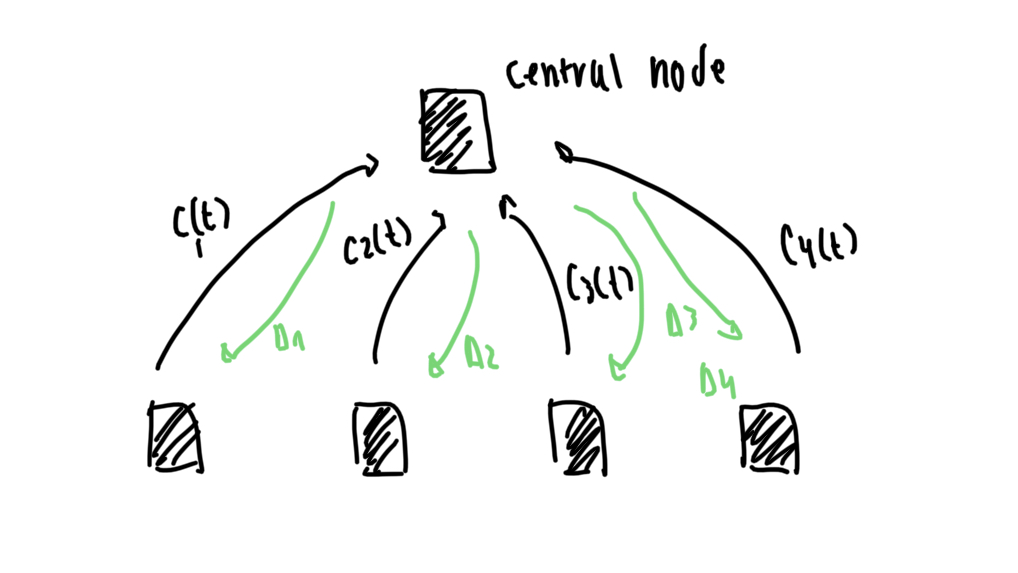 central node
C1(t)
C2(t)
C3(t)
C4(t)
Δ1
Δ2
Δ3
Δ4